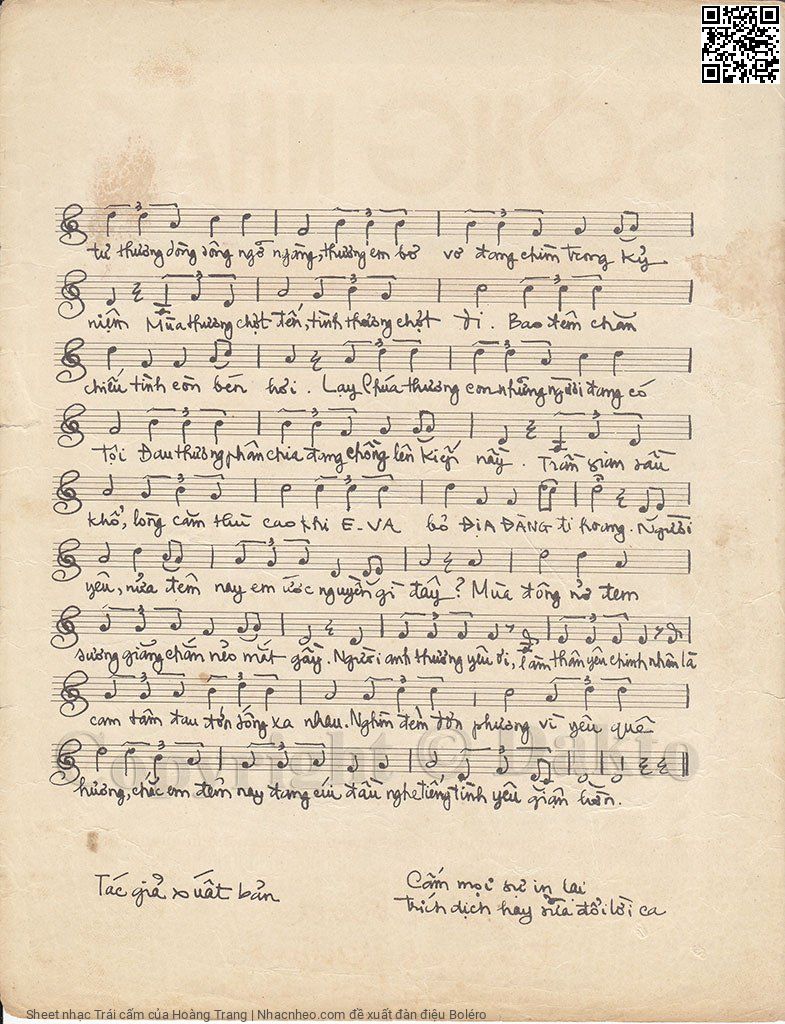 từ thương dòng sông ngỡ ngàng, thương em bơ vơ đang chìm trong kỷ
niệm Mùa thương chợt đến, tình thương chợt đi. Bao đêm chăn
chiếu tình còn bén hơi. Lạy Chúa thương con những người đang có
tội Đau thương phân chia đang chồng lên kiếp nầy. Trần gian sầu
khổ, lòng căm thù cao khi E-VA bỏ ĐỊA ĐÀNG đi hoang. Người
yêu, nửa đêm nay em ước nguyền gì đây? Mùa đông nở đem
sương giăng chắn nẻo mắt gầy. Người anh thương yêu ơi, làm thân yêu chinh nhân là
cam tâm đau đớn sống xa nhau. Nghìn đêm đơn phương vì yêu quê
hương, chắc em đêm nay đang cúi đầu nghe tiếng tình yêu giận hờn.
Copyright © Dakto
Tác giả xuất bản
Cấm mọi sự in lại
trích dịch hay sửa đổi lời ca
Sheet nhạc Trái cấm của Hoàng Trang | Nhacnheo.com đề xuất đàn điệu Boléro